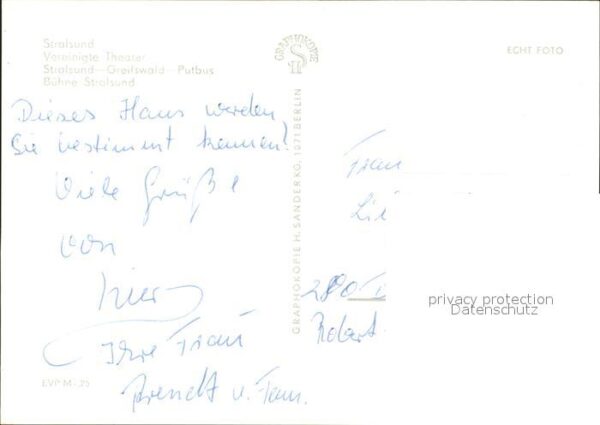 Stralsund
Vereinigte Theater
Stralsund—Greifswald—Putbus
Bühne Stralsund
GRAPHOKOPIE
H S
ECHT FOTO
GRAPHOKOPIE H. SANDER KG, 1071 BERLIN
Dieses Haus werden
Sie bestimmt kennen!
Viele Grüße
von
hier
Ihre Frau
Arendt u. Fam.
Frau
Li
2
Robert
privacy protection
Datenschutz
EVP M -,25